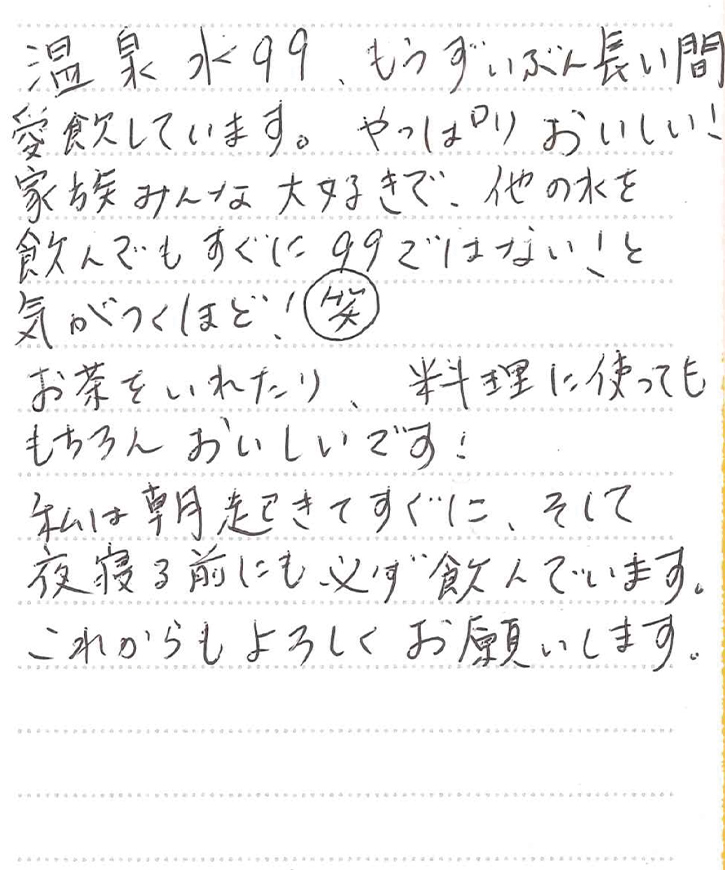 温泉水99、もうずいぶん長い間
愛飲しています。やっぱり おいしい!
家族みんな大好きで、他の水を
飲んでもすぐに99ではない!と
気がつくほど!笑
お茶をいれたり、料理に使っても
もちろん おいしいです!
私は朝起きてすぐに、そして
夜寝る前にも必ず飲んでいます。
これからもよろしくお願いします。